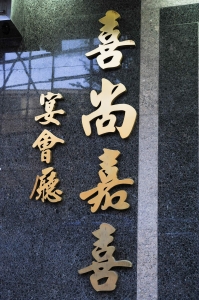 喜尚嘉喜
宴會廳